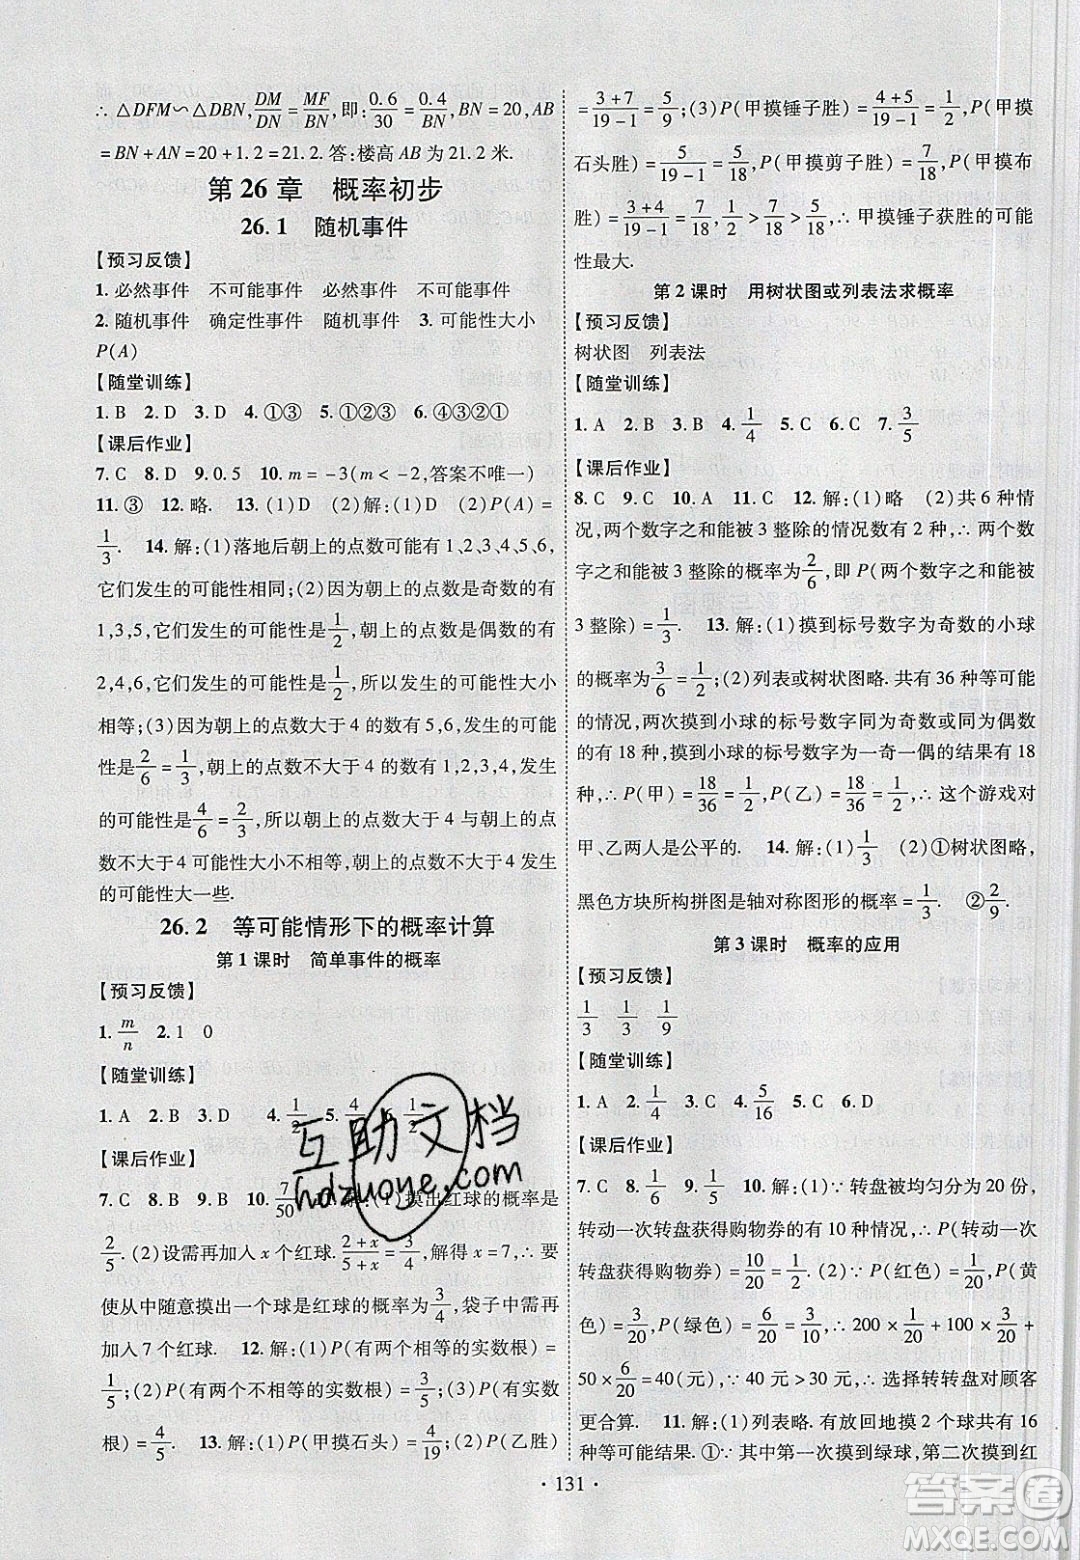 ∴ △DFM∽△DBN, DM/DN = MF/BN, 即: 0.6/30 = 0.4/BN, BN = 20, AB
= BN + AN = 20 + 1.2 = 21.2. 答: 楼高 AB 为 21.2 米.
第 26 章 概率初步
26.1 随机事件
【预习反馈】
1. 必然事件 不可能事件 随机事件 确定事件
2. 随机事件 确定性事件 随机事件 3. 可能性大小
P(A)
【随堂训练】
1. B 2. D 3. D 4. ①③ 5. ①②③ 6. ④③②①
【课后作业】
7. C 8. D 9. 0.5 10. m = -3(m < -2, 答案不唯一)
11. ③ 12. 略. 13. (1)D (2)解:(1)B (2)P(A) =
1/3. 14. 解:(1)落地后朝上的点数可能有 1、2、3、4、5、6,
它们发生的可能性相同;(2)因为朝上的点数是奇数的有
1,3,5,它们发生的可能性为 1/2,朝上的点数是偶数的有
2,4,6,它们发生的可能性为 1/2,所以发生的可能性大小
相等;(3)因为朝上的点数大于 4 的数有 5,6,发生的可能
性为 2/6 = 1/3,朝上的点数不大于 4 的数有 1,2,3,4,发生
的可能性为 4/6 = 2/3,所以朝上的点数大于 4 与朝上的点
数不大于 4 可能性大小不相等,朝上的点数不大于 4 发生
的可能性大一些.
26.2 等可能情形下的概率计算
第 1 课时 简单事件的概率
【预习反馈】
1. m/n 2. 1 0
【随堂训练】
1. A 2. B 3. B 4. 1/2 5. 4/ 6. 1/2
【课后作业】
7. C 8. B 9. B 10. 7/50 11. 解:(1)摸出红球的概率是
2/5.(2)设需再加入 x 个红球. (2+x)/(5+x) = 3/4,解得 x = 7, ∴ 要
使从中随意摸出一个球是红球的概率为 3/4,袋子中需再
加入 7 个红球. 12. 解:(1)P(有两个相等的实数根) =
1/5;(2)P(有两个不相等的实数根) = 4/5;(3)P(有实数
根) = 4/5. 13. 解:(1)P(甲摸石头) = 4/19;(2)P(乙胜)
= (3+7)/(19-1) = 5/9;(3)P(甲摸锤子胜) = (4+5)/(19-1) = 1/2,P(甲摸
石头胜) = 5/(19-1) = 5/18,P(甲摸剪子胜) = 7/18,P(甲摸布
胜) = (3+4)/(19-1) = 7/18, 1/2 > 7/18 > 5/18, ∴ 甲摸锤子获胜的可能
性最大.
第 2 课时 用树状图或列表法求概率
【预习反馈】
树状图 列表法
【随堂训练】
1. A 2. B 3. B 4. 1/4 5. C 6. C 7. 3/5
【课后作业】
8. C 9. C 10. A 11. C 12. 解:(1)略 (2)共 6 种情
况,两个数字之和能被 3 整除的情况数有 2 种, ∴ 两个数
字之和能被 3 整除的概率为 2/6,即 P(两个数字之和能被
3 整除) = 1/3. 13. 解:(1)摸到标号数字为奇数的小球
的概率为 3/6 = 1/2;(2)列表或树状图略. 共有 36 种等可能
的情况,两次摸到小球的标号数字同为奇数或同为偶数的
有 18 种,摸到小球的标号数字为一奇一偶的结果有 18
种, ∴ P(甲) = 18/36 = 1/2, P(乙) = 18/36 = 1/2, ∴ 这个游戏对
甲、乙两人是公平的. 14. 解:(1)1/3 (2)①树状图略,
黑色方块所构拼图是轴对称图形的概率 = 1/3. ②2/9.
第 3 课时 概率的应用
【预习反馈】
1/3 1/3 1/3
【随堂训练】
1. A 2. 1/4 3. B 4. 5/16 5. C 6. D
【课后作业】
7. C 8. 1/6 9. 1/6 10. 解:(1) ∵ 转盘被均匀分为 20 份,
转动一次转盘获得购物券的有 10 种情况, ∴ P(转动一次
转盘获得购物券) = 10/20 = 1/2. (2) ∵ P(红色) = 1/20,P(黄
色) = 3/20,P(绿色) = 6/20 = 3/10, ∴ 200 × 1/20 + 100 × 3/20 +
50 × 6/20 = 40(元), ∵ 40 元 > 30 元, ∴ 选择转转盘对顾客
更合算. 11. 解:(1)列表略. 有放回地摸 2 个球共有 16
种等可能结果. ① ∵ 其中第一次摸到绿球,第二次摸到红
· 131 ·
互助文档
hdzuoye.com
答案圈
MXQE.COM